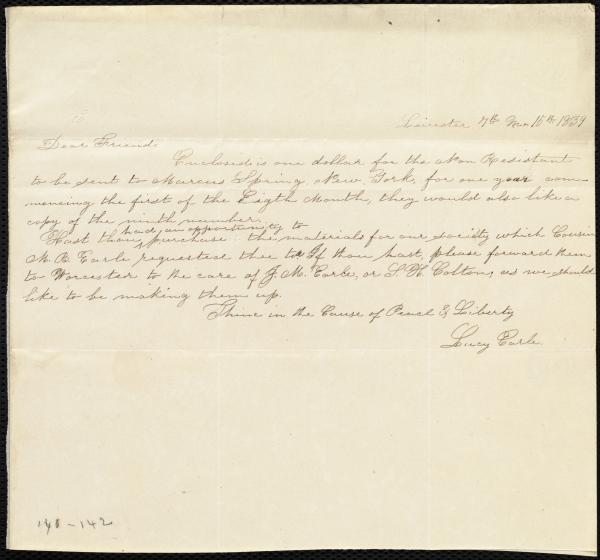 Leicester 7th Mo. 15th 1839
Dear Friend;
Enclosed is one dollar for the Non Resistant
to be sent to Marcus Spring, New York, for one year com-
mencing the first of the Eigth Month, they would also like a
copy of the ninth number.
had an opportunity to
Hast thou purchase the materials for our society which Cousin
M. B. Earle requested thee to? If thou hast, please forward them
to Worcester to the care of J. M. Earle, or S. H. Colton, as we should
like to be making them up.
Thine in the Cause of Peace & Liberty
Lucy Earle.
140-142